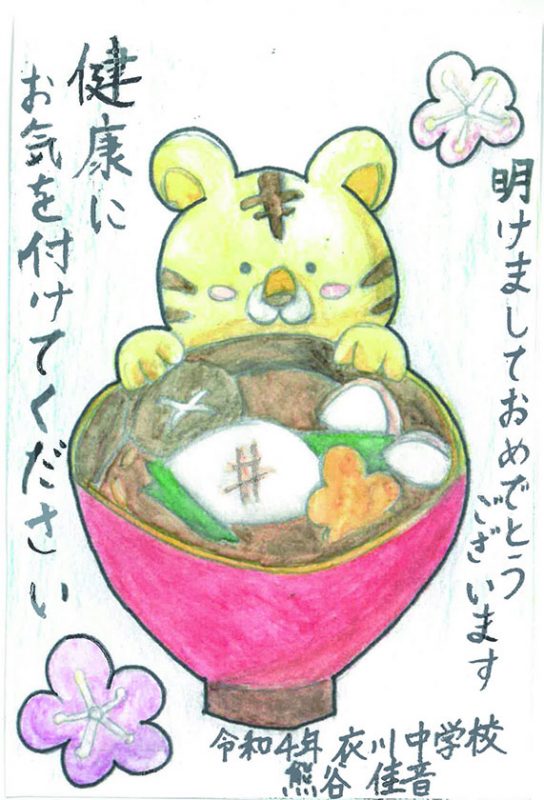 明けましておめでとう
ございます
健康に
お気を付けてください
令和4年 衣川中学校
熊谷 佳音